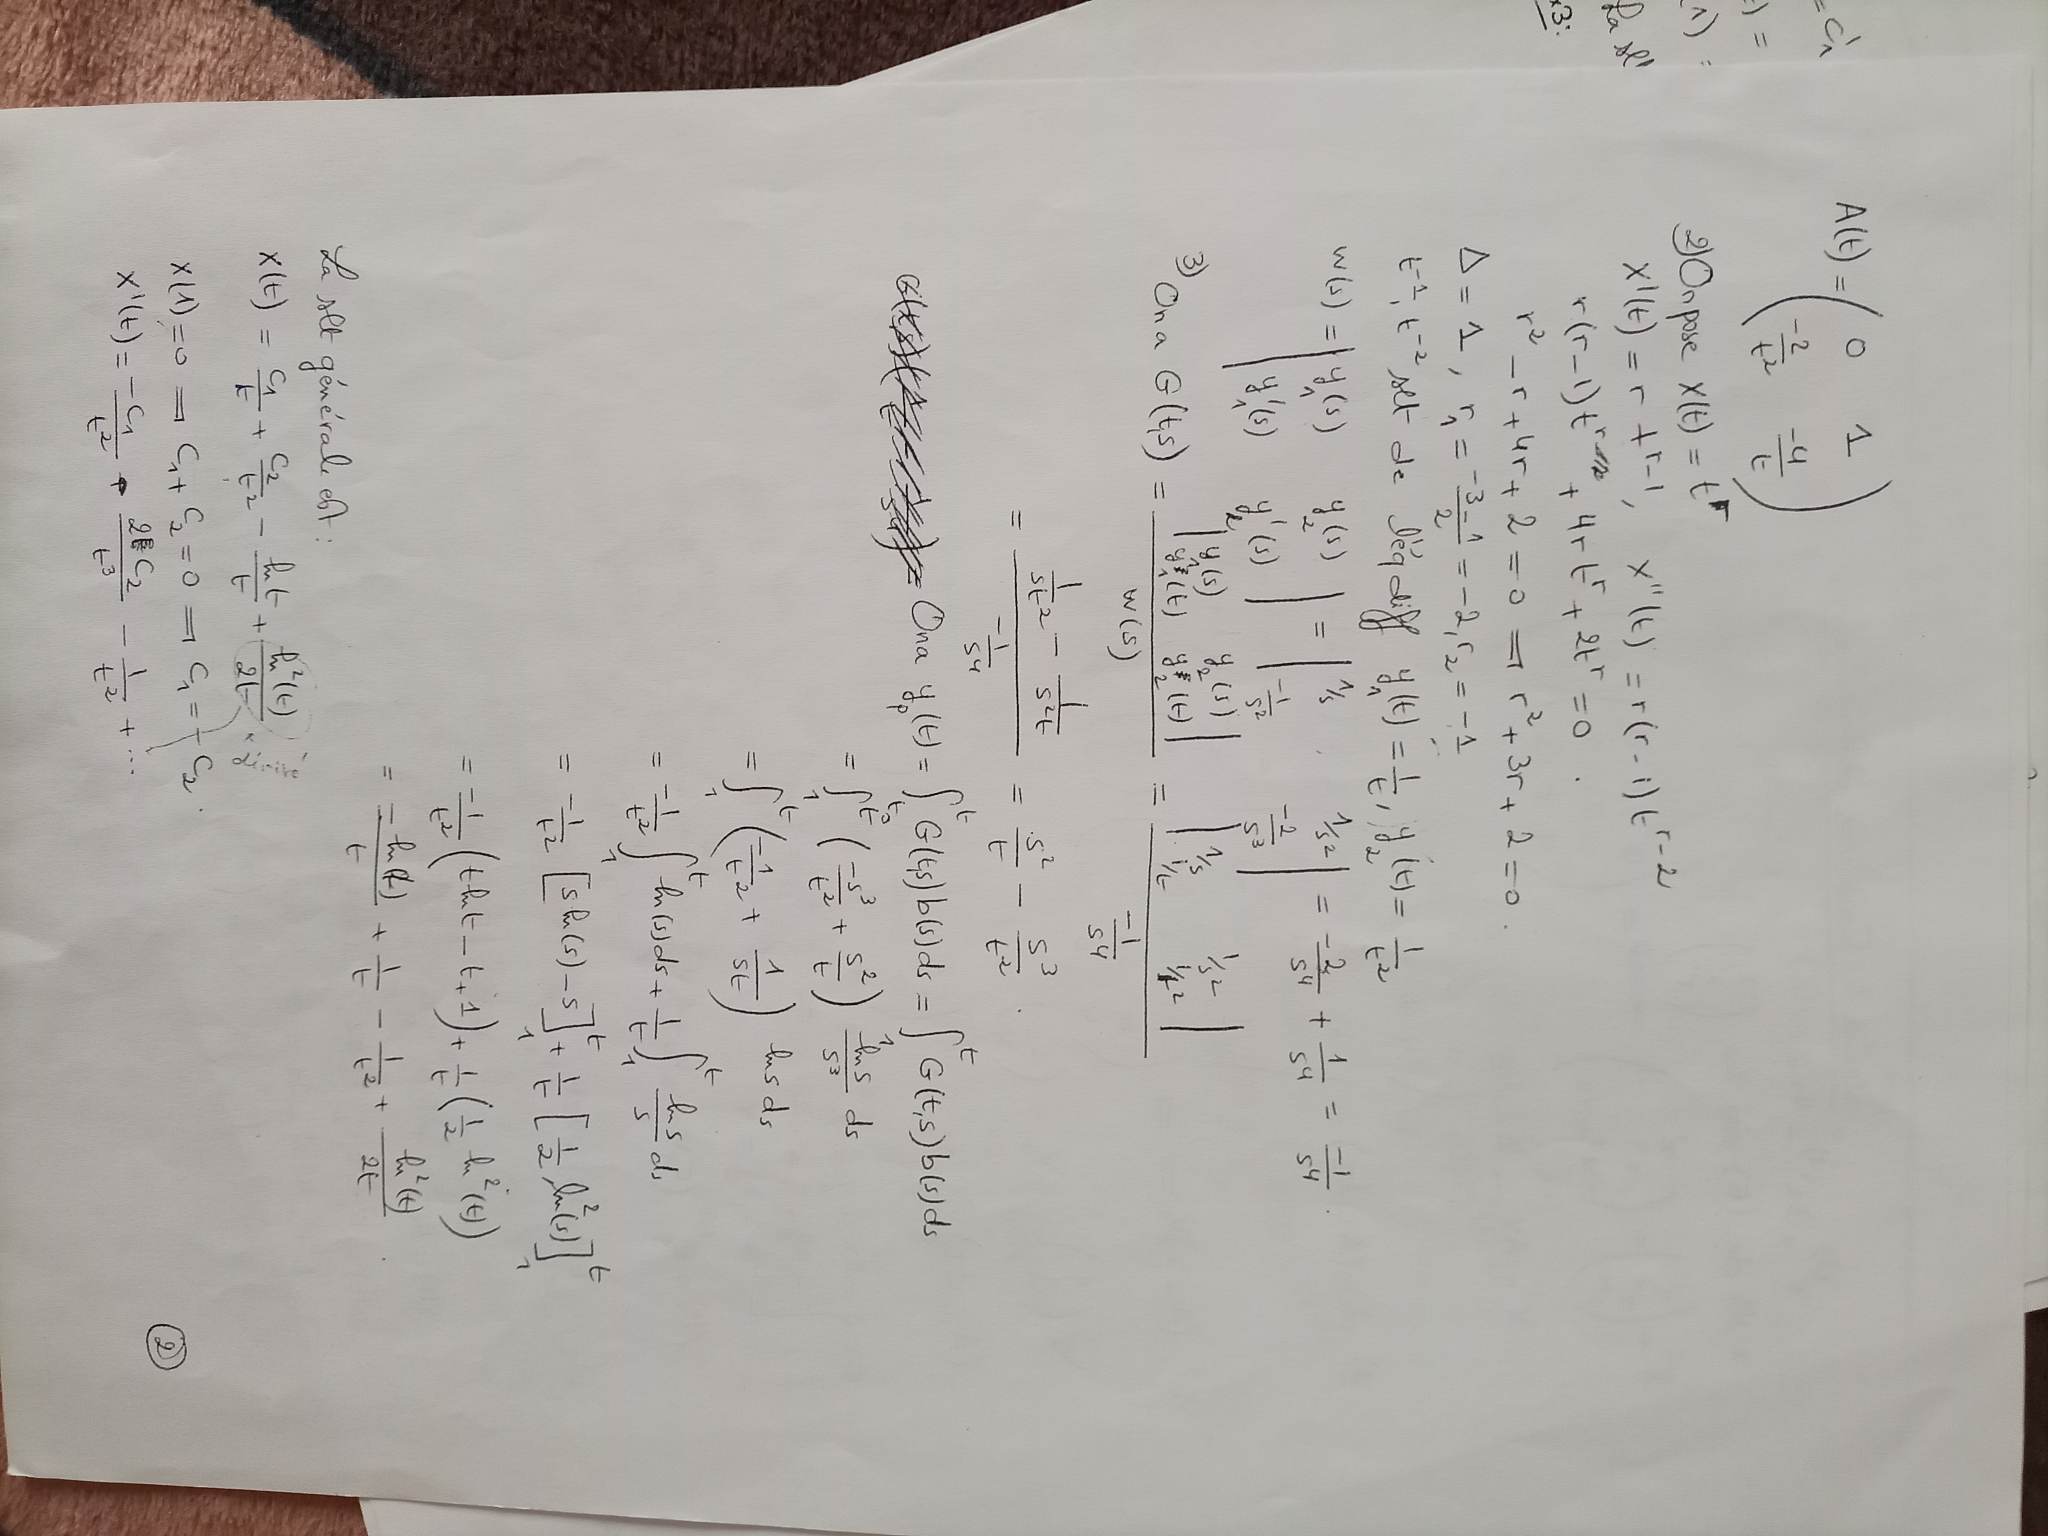 = C'₁
t) =
(1) =
La slt
x3:
A(t) = ( 0 1
-2/t² -4/t )
2) On pose x(t) = t^r
x'(t) = r t^{r-1}, x''(t) = r(r-1) t^{r-2}
r(r-1) t^r + 4r t^r + 2t^r = 0.
r² - r + 4r + 2 = 0 ⟹ r² + 3r + 2 = 0.
Δ = 1, r₁ = (-3-1)/2 = -2, r₂ = -1
t^{-1}, t^{-2} slt de l'éq diff y₁(t) = 1/t, y₂(t) = 1/t²
w(s) = | y₁(s) y₂(s) ; y'₁(s) y'₂(s) | = | 1/s 1/s² ; -1/s² -2/s³ | = -2/s⁴ + 1/s⁴ = -1/s⁴.
3) On a G(t,s) = | y₁(s) y₂(s) ; y₁(t) y₂(t) | / w(s) = | 1/s 1/s² ; 1/t 1/t² | / (-1/s⁴)
= (1/(st²) - 1/(s²t)) / (-1/s⁴) = s²/t - s³/t².
On a y_p(t) = ∫_{t₀}^t G(t,s) b(s) ds = ∫_1^t G(t,s) b(s) ds
= ∫_1^t (-s³/t² + s²/t) ln s/s³ ds
= ∫_1^t (-1/t² + 1/(st)) ln s ds
= -1/t² ∫_1^t ln(s) ds + 1/t ∫_1^t ln s/s ds
= -1/t² [s ln(s) - s]_1^t + 1/t [1/2 ln²(s)]_1^t
= -1/t² (t ln t - t + 1) + 1/t (1/2 ln²(t))
= -ln(t)/t + 1/t - 1/t² + ln²(t)/2t.
La slt générale est:
x(t) = C₁/t + C₂/t² - ln t/t + ln²(t)/2t
x(1) = 0 ⟹ C₁ + C₂ = 0 ⟹ C₁ = -C₂.
x'(t) = -C₁/t² - 2C₂/t³ - 1/t² + ...
2